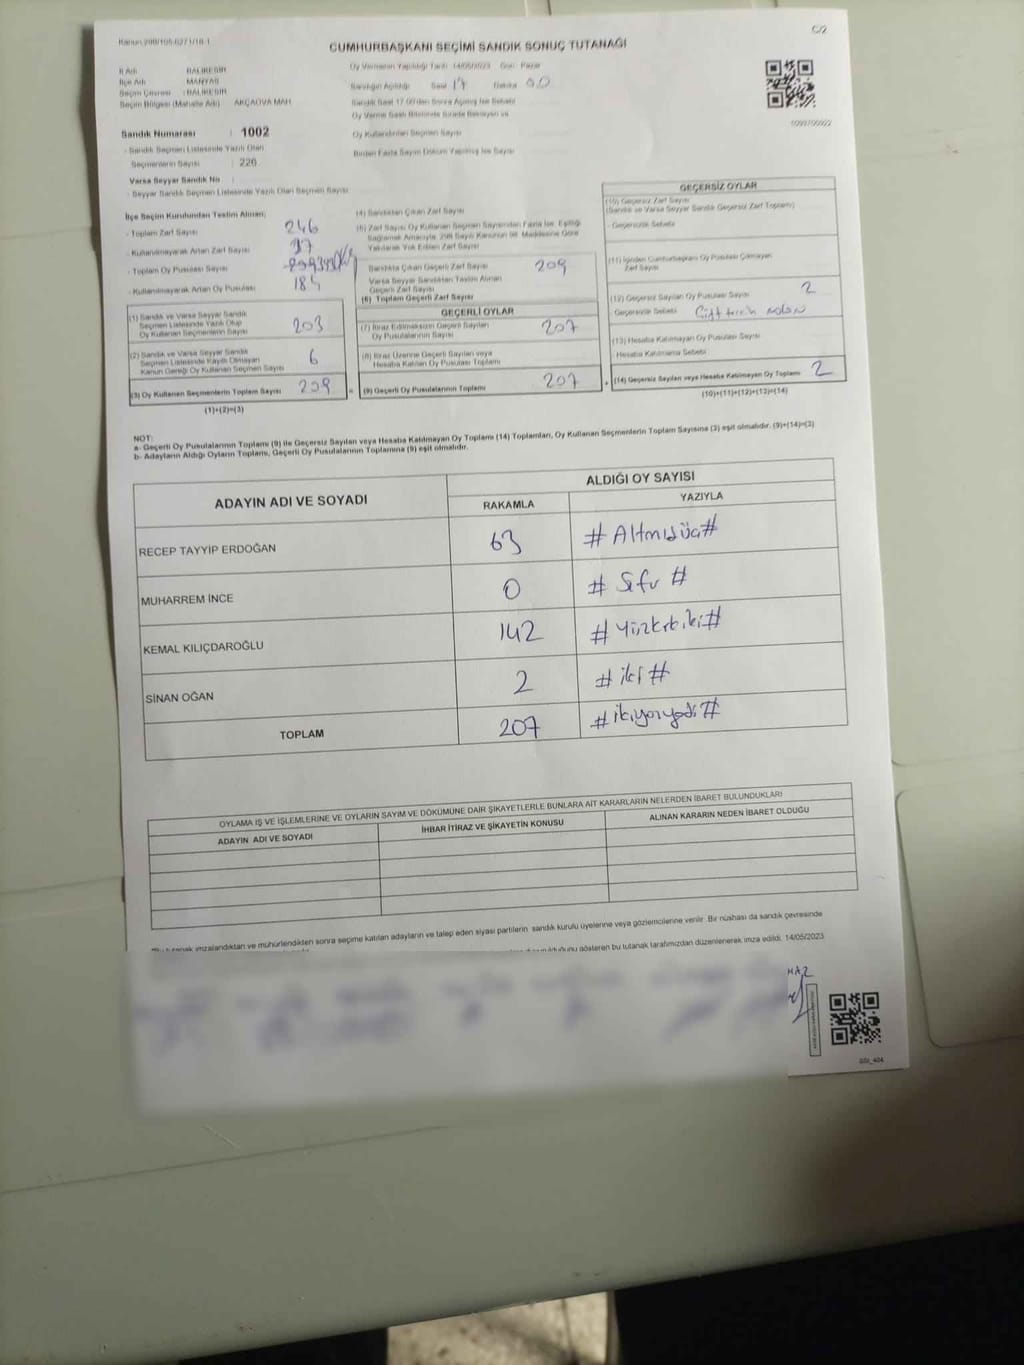 Kanun 298/105-6271/18-1
C/2
CUMHURBAŞKANI SEÇİMİ SANDIK SONUÇ TUTANAĞI
İl Adı : BALIKESİR
İlçe Adı : MANYAS
Seçim Çevresi : BALIKESİR
Seçim Bölgesi (Mahalle Adı) AKÇAOVA MAH.
Sandık Numarası : 1002
- Sandık Seçmen Listesinde Yazılı Olan
Seçmenlerin Sayısı : 226
Varsa Seyyar Sandık No :
- Seyyar Sandık Seçmen Listesinde Yazılı Olan Seçmen Sayısı
Oy Vermenin Yapıldığı Tarih 14/05/2023 Gün: Pazar
Sandığın Açıldığı Saat 17 Dakika 00
Sandık Saat 17:00'den Sonra Açılmış İse Sebebi
Oy Verme Saati Bitiminde Sırada Bekleyen ve
Oy Kullandırılan Seçmen Sayısı
Birden Fazla Sayım Döküm Yapılmış İse Sayısı
İlçe Seçim Kurulundan Teslim Alınan;
- Toplam Zarf Sayısı 246
- Kullanılmayarak Artan Zarf Sayısı 37
- Toplam Oy Pusulası Sayısı
- Kullanılmayarak Artan Oy Pusulası 184
(1) Sandık ve Varsa Seyyar Sandık
Seçmen Listesinde Yazılı Olup
Oy Kullanan Seçmenlerin Sayısı 203
(2) Sandık ve Varsa Seyyar Sandık
Seçmen Listesinde Kayıtlı Olmayan
Kanun Gereği Oy Kullanan Seçmen Sayısı 6
(3) Oy Kullanan Seçmenlerin Toplam Sayısı 209
(1)+(2)=(3)
(4) Sandıktan Çıkan Zarf Sayısı
(5) Zarf Sayısı Oy Kullanan Seçmen Sayısından Fazla İse, Eşitliği
Sağlamak Amacıyla, 298 Sayılı Kanunun 98. Maddesine Göre
Yakılarak Yok Edilen Zarf Sayısı
Sandıkta Çıkan Geçerli Zarf Sayısı 209
Varsa Seyyar Sandıktan Teslim Alınan
Geçerli Zarf Sayısı
(6) Toplam Geçerli Zarf Sayısı
GEÇERLİ OYLAR
(7) İtiraz Edilmeksizin Geçerli Sayılan
Oy Pusulalarının Sayısı 207
(8) İtiraz Üzerine Geçerli Sayılan veya
Hesaba Katılan Oy Pusulası Toplamı
(9) Geçerli Oy Pusulalarının Toplamı 207
1099700922
GEÇERSİZ OYLAR
(10) Geçersiz Zarf Sayısı
(Sandık ve Varsa Seyyar Sandık Geçersiz Zarf Toplamı)
- Geçersizlik Sebebi
(11) İçinden Cumhurbaşkanı Oy Pusulası Çıkmayan
Zarf Sayısı
(12) Geçersiz Sayılan Oy Pusulası Sayısı 2
Geçersizlik Sebebi Çift tercih
(13) Hesaba Katılmayan Oy Pusulası Sayısı
Hesaba Katılmama Sebebi
(14) Geçersiz Sayılan veya Hesaba Katılmayan Oy Toplamı 2
(10)+(11)+(12)+(13)=(14)
NOT:
a- Geçerli Oy Pusulalarının Toplamı (9) ile Geçersiz Sayılan veya Hesaba Katılmayan Oy Toplamı (14) Toplamları, Oy Kullanan Seçmenlerin Toplam Sayısına (3) eşit olmalıdır. (9)+(14)=(3)
b- Adayların Aldığı Oyların Toplamı, Geçerli Oy Pusulalarının Toplamına (9) eşit olmalıdır.
ADAYIN ADI VE SOYADI
ALDIĞI OY SAYISI
RAKAMLA YAZIYLA
RECEP TAYYİP ERDOĞAN 63 # Altmışüç #
MUHARREM İNCE 0 # Sıfır #
KEMAL KILIÇDAROĞLU 142 # Yüzkırkiki #
SİNAN OĞAN 2 # iki #
TOPLAM 207 # ikiyüzyedi #
OYLAMA İŞ VE İŞLEMLERİNE VE OYLARIN SAYIM VE DÖKÜMÜNE DAİR ŞİKAYETLERLE BUNLARA AİT KARARLARIN NELERDEN İBARET BULUNDUKLARI
ADAYIN ADI VE SOYADI İHBAR İTİRAZ VE ŞİKAYETİN KONUSU ALINAN KARARIN NEDEN İBARET OLDUĞU
tutanak imzalandıktan ve mühürlendikten sonra seçime katılan adayların ve talep eden siyasi partilerin sandık kurulu üyelerine veya gözlemcilerine verilir. Bir nüshası da sandık çevresinde
olduğunu gösteren bu tutanak tarafımızdan düzenlenerek imza edildi. 14/05/2023